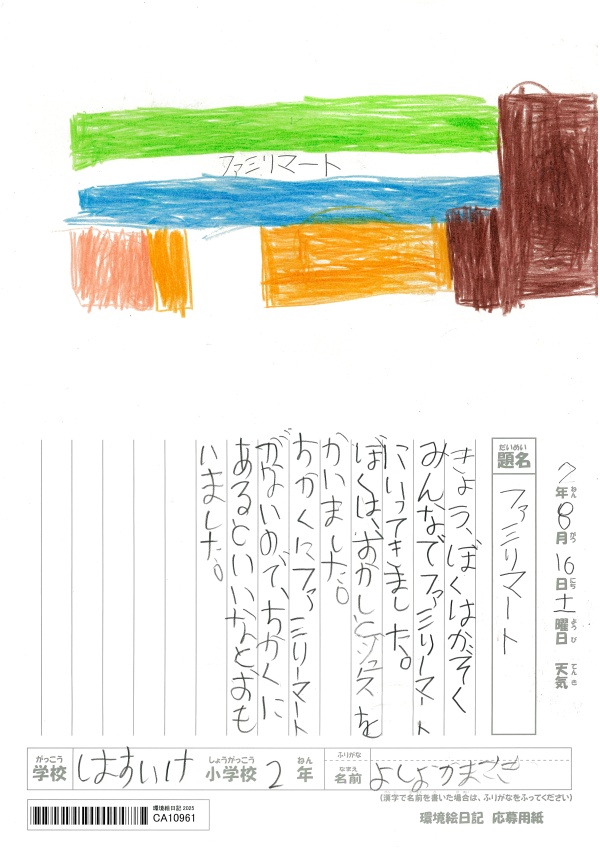 ファミリマート
7年8月16日土曜日 天気
ねん がつ にち ようび てんき
だいめい
題名
ファミリマート
きょう、ぼくはかぞく
みんなでファミリーマート
にいってきました。
ぼくは、おかしとジュースを
かいました。
ちかくにファミリーマート
がないので、ちかくに
あるといいなとおも
いました。
がっこう しょうがっこう ねん なまえ ふりがな
学校 はすいけ 小学校 2年 名前 よしおかまさき
(漢字で名前を書いた場合は、ふりがなをふってください)
環境絵日記 2025
CA10961
環境絵日記 応募用紙